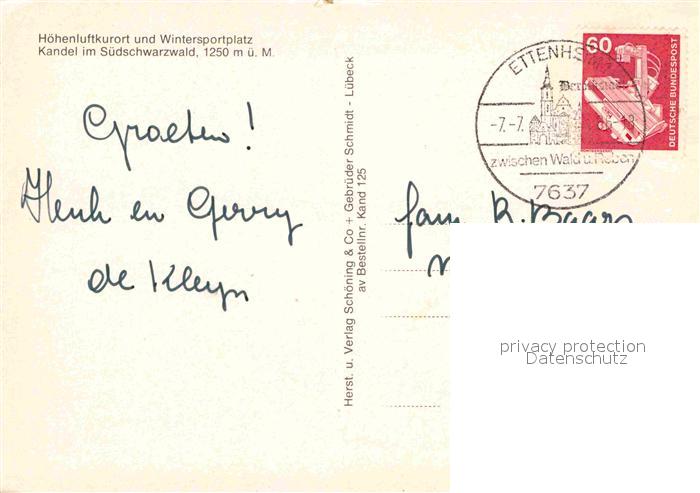 Höhenluftkurort und Wintersportplatz
Kandel im Südschwarzwald, 1250 m ü. M.
Groeten!
Henk en Gerry
de Kleyn
Herst. u. Verlag Schöning & Co + Gebrüder Schmidt - Lübeck
av Bestellnr. Kand 125
ETTENHEIM
-7.-7.
zwischen Wald u. Reben
7637
60
DEUTSCHE BUNDESPOST
fam R. Baars
privacy protection
Datenschutz